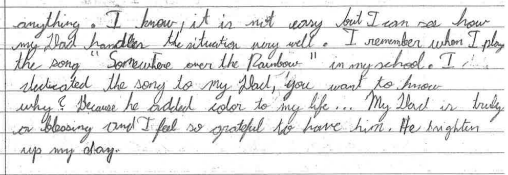 anything. I know, it is not easy but I can see how
my Dad handles the situation very well. I remember when I play
the song "Somewhere over the Rainbow" in my school. I
dedicated the song to my Dad, you want to know
why? Because he added color to my life... My Dad is truly
a blessing and I feel so grateful to have him. He brighten
up my day.